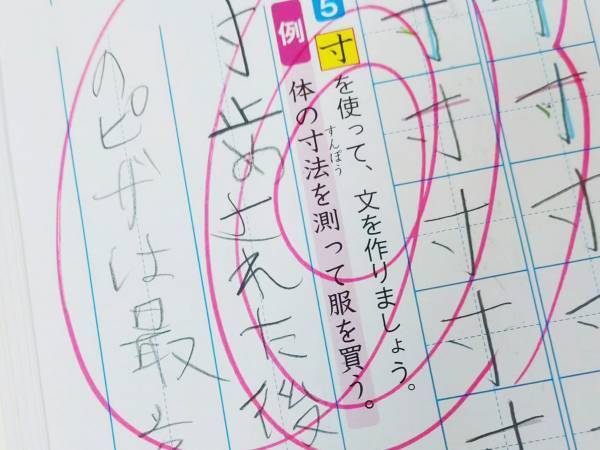 寸
寸
寸
寸
寸
寸
寸
寸
寸
寸
5
寸を使って、文を作りましょう。
すんぽう
例 体の寸法を測って服を買う。
寸止めされた後
のピザは最